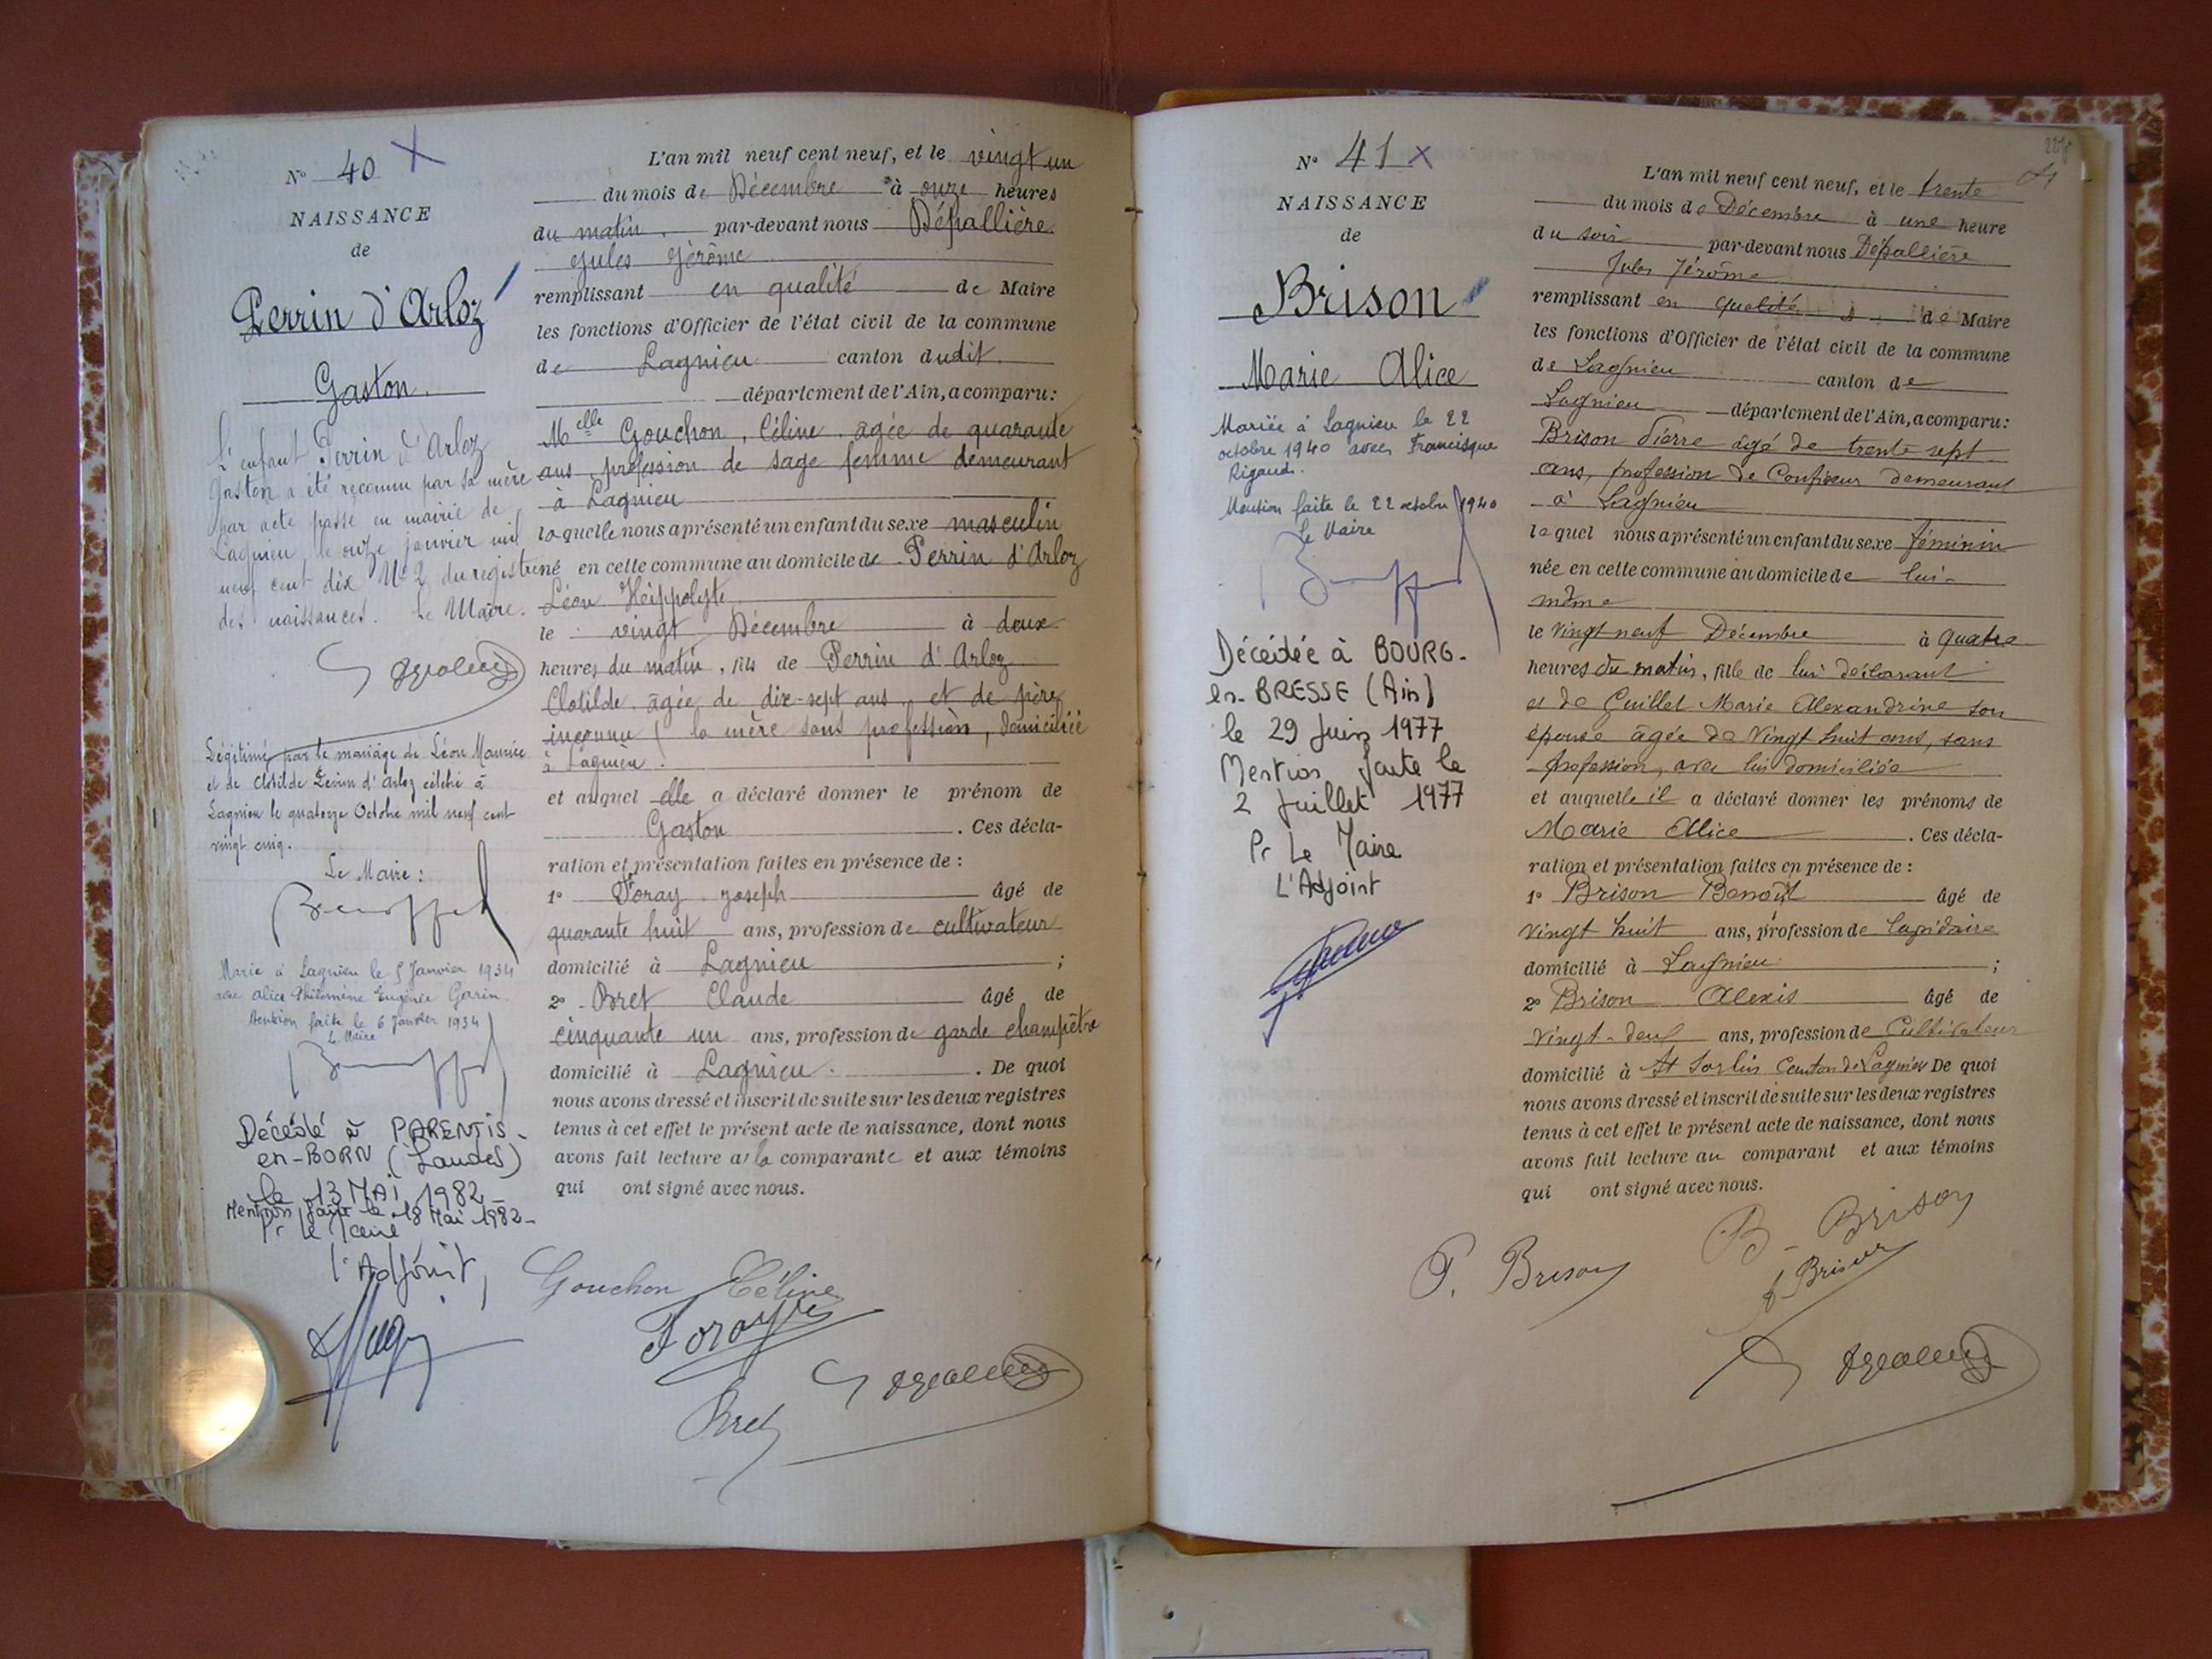 N° 40 X
NAISSANCE
de
Perrin d'Arloz
Gaston.
L'enfant Perrin d'Arloz
Gaston a été reconnu par sa mère
par acte passé en mairie de
Lagnieu, le onze janvier mil
neuf cent dix N° 2 du registre
des naissances. Le Maire.
Légitimé par le mariage de Léon Maurice
et de Clotilde Perrin d'Arloz célébré à
Lagnieu le quatorze Octobre mil neuf cent
vingt cinq.
Le Maire :
Marié à Lagnieu le 5 Janvier 1934
avec Alice Philomène Eugénie Garin.
Mention faite le 6 Janvier 1934
Le Maire
Décédé à PARENTIS-
en-BORN (Landes)
le 13 MAI 1982
Mention faite le 18 Mai 1982-
Pr le Maire
l'Adjoint,
L'an mil neuf cent neuf, et le vingt un
du mois de Décembre à onze heures
du matin. par-devant nous Dépallière
Jules Jérôme
remplissant en qualité de Maire
les fonctions d'Officier de l'état civil de la commune
de Lagnieu canton dudit.
département de l'Ain, a comparu:
Melle Gouchon, Céline. agée de quarante
ans, profession de sage femme demeurant
à Lagnieu
laquelle nous a présenté un enfant du sexe masculin
né en cette commune au domicile de Perrin d'Arloz
Léon Hippolyte
le vingt Décembre à deux
heures du matin, fils de Perrin d'Arloz
Clotilde. âgée de dix-sept ans, et de père
inconnu ( la mère sans profession, domiciliée
à Lagnieu.
et auquel elle a déclaré donner le prénom de
Gaston. Ces décla-
ration et présentation faites en présence de :
1° Foray Joseph âgé de
quarante huit ans, profession de cultivateur
domicilié à Lagnieu ;
2° Bret Claude âgé de
cinquante un ans, profession de garde champêtre
domicilié à Lagnieu. De quoi
nous avons dressé et inscrit de suite sur les deux registres
tenus à cet effet le présent acte de naissance, dont nous
avons fait lecture à la comparante et aux témoins
qui ont signé avec nous.
Gouchon Céline
Foray
Bret
N° 41 X
NAISSANCE
de
Brison
Marie Alice
Mariée à Lagnieu le 22
octobre 1940 avec Francisque
Rigaud.
Mention faite le 22 octobre 1940
Le Maire
Décédée à BOURG-
en-BRESSE (Ain)
le 29 Juin 1977
Mention faite le
2 Juillet 1977
Pr Le Maire
L'Adjoint
L'an mil neuf cent neuf, et le trente
du mois de Décembre à une heure
du soir par-devant nous Dépallière
Jules Jérôme
remplissant en qualité de Maire
les fonctions d'Officier de l'état civil de la commune
de Lagnieu canton de
Lagnieu département de l'Ain, a comparu:
Brison Pierre âgé de trente sept
ans, profession de Confiseur demeurant
à Lagnieu
lequel nous a présenté un enfant du sexe féminin
née en cette commune au domicile de lui-
même
le Vingt neuf Décembre à quatre
heures du matin, fille de lui déclarant
et de Guillet Marie Alexandrine son
épouse âgée de Vingt huit ans, sans
profession, avec lui domiciliée
et auquelle il a déclaré donner les prénoms de
Marie Alice. Ces décla-
ration et présentation faites en présence de :
1° Brison Benoît âgé de
Vingt huit ans, profession de lapidaire
domicilié à Lagnieu ;
2° Brison Alexis âgé de
Vingt-deux ans, profession de Cultivateur
domicilié à St Sorlin Canton de Lagnieu De quoi
nous avons dressé et inscrit de suite sur les deux registres
tenus à cet effet le présent acte de naissance, dont nous
avons fait lecture au comparant et aux témoins
qui ont signé avec nous.
P. Brison
B- Brison
A Brison